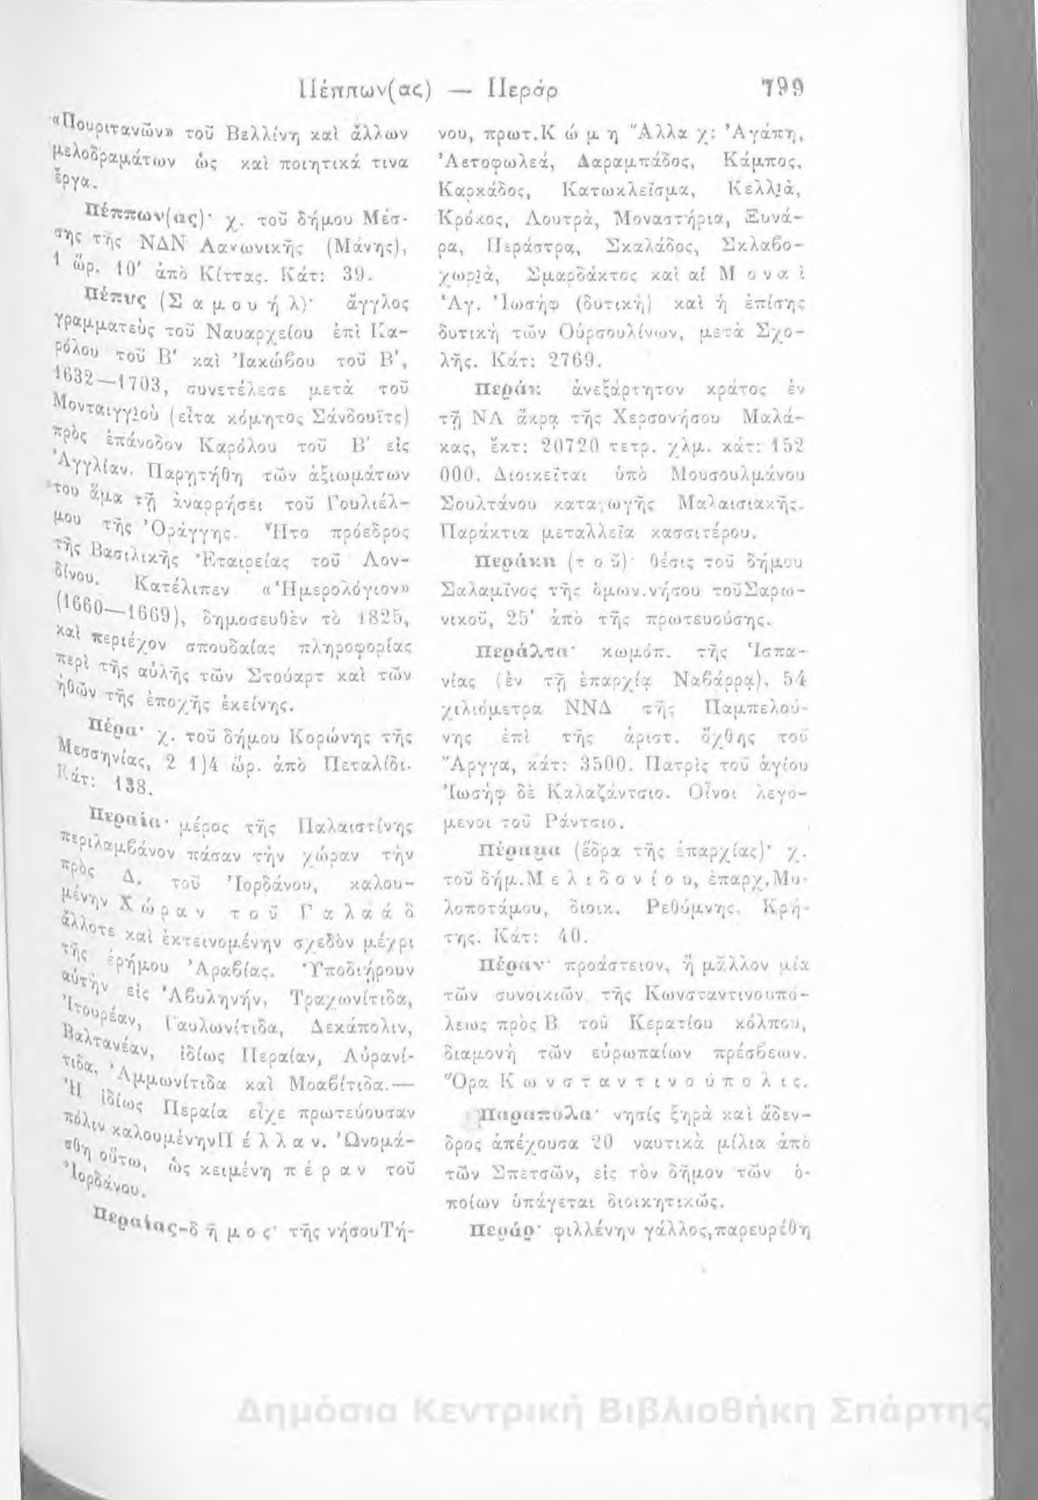 Πέππων(ας) — Περάρ 799
«Πουριτανῶν» τοῦ Βελλίνη καὶ ἄλλων
μελοδραμάτων ὡς καὶ ποιητικά τινα
ἔργα.
Πέππων(ας)· χ. τοῦ δήμου Μέσ-
σης τῆς ΝΔΝ Λακωνικῆς (Μάνης),
1 ὡρ. 10' ἀπὸ Κίττας. Κάτ: 39.
Πέπυς (Σαμουήλ)· ἄγγλος
γραμματεὺς τοῦ Ναυαρχείου ἐπὶ Κα-
ρόλου τοῦ Β' καὶ Ἰακώβου τοῦ Β',
1632—1703, συνετέλεσε μετὰ τοῦ
Μονταιγγιοὺ (εἶτα κόμητος Σάνδουϊτς)
πρὸς ἐπάνοδον Καρόλου τοῦ Β' εἰς
Ἀγγλίαν. Παρητήθη τῶν ἀξιωμάτων
του ἅμα τῇ ἀναρρήσει τοῦ Γουλιέλ-
μου τῆς Ὀράγγης. Ἦτο πρόεδρος
τῆς Βασιλικῆς Ἑταιρείας τοῦ Λον-
δίνου. Κατέλιπεν «Ἡμερολόγιον»
(1660—1669), δημοσευθὲν τὸ 1825,
καὶ περιέχον σπουδαίας πληροφορίας
περὶ τῆς αὐλῆς τῶν Στούαρτ καὶ τῶν
ἠθῶν τῆς ἐποχῆς ἐκείνης.
Πέρα· χ. τοῦ δήμου Κορώνης τῆς
Μεσσηνίας, 2 1)4 ὡρ. ἀπὸ Πεταλίδι.
Κάτ: 138.
Περαία· μέρος τῆς Παλαιστίνης
περιλαμβάνον πάσαν τὴν χώραν τὴν
πρὸς Δ. τοῦ Ἰορδάνου, καλου-
μένην Χώραν τοῦ Γαλαάδ
ἄλλοτε καὶ ἐκτεινομένην σχεδὸν μέχρι
τῆς ἐρήμου Ἀραβίας. Ὑποδιῄρουν
αὐτὴν εἰς Ἀβυληνήν, Τραχωνίτιδα,
Ἰτουρέαν, Γαυλωνίτιδα, Δεκάπολιν,
Βαλτανέαν, ἰδίως Περαίαν, Αὐρανί-
τιδα, Ἀμμωνίτιδα καὶ Μοαβίτιδα.—
Ἡ ἰδίως Περαία εἶχε πρωτεύουσαν
πόλιν καλουμένηνΠέλλαν. Ὠνομά-
σθη οὕτω, ὡς κειμένη πέραν τοῦ
Ἰορδάνου.
Περαίας-δῆμος· τῆς νήσουΤή-
νου, πρωτ.Κώμη Ἄλλα χ: Ἀγάπη,
Ἀετοφωλεά, Δαραμπάδος, Κάμπος,
Καρκάδος, Κατωκλεῖσμα, Κελλιά,
Κρόκος, Λουτρά, Μοναστήρια, Ξυνά-
ρα, Περάστρα, Σκαλάδος, Σκλαβο-
χωριά, Σμαρδάκτος καὶ αἱ Μοναὶ
Ἁγ. Ἰωσὴφ (δυτικὴ) καὶ ἡ ἐπίσης
δυτικὴ τῶν Οὑρσουλίνων, μετὰ Σχο-
λῆς. Κάτ: 2769.
Περάκ ἀνεξάρτητον κράτος ἐν
τῇ ΝΔ ἄκρᾳ τῆς Χερσονήσου Μαλά-
κας, ἔκτ: 20720 τετρ. χλμ. κάτ: 152
000. Διοικεῖται ὑπὸ Μουσουλμάνου
Σουλτάνου καταγωγῆς Μαλαισιακῆς.
Παράκτια μεταλλεῖα κασσιτέρου.
Περάκη (τοῦ)· θέσις τοῦ δήμου
Σαλαμῖνος τῆς ὁμων.νήσου τοῦΣαρω-
νικοῦ, 25' ἀπὸ τῆς πρωτευούσης.
Περάλτα· κωμόπ. τῆς Ἱσπα-
νίας (ἐν τῇ ἐπαρχίᾳ Ναβάρρα), 54
χιλιόμετρα ΝΝΔ τῆς Παμπελού-
νης ἐπὶ τῆς ἀριστ. ὄχθης τοῦ
Ἄργγα, κάτ: 3500. Πατρὶς τοῦ ἁγίου
Ἰωσὴφ δὲ Καλαζάντσιο. Οἶνοι λεγό-
μενοι τοῦ Ράντσιο.
Πέραμα (ἕδρα τῆς ἐπαρχίας)· χ.
τοῦ δήμ.Μελιδονίου, ἐπαρχ.Μυ-
λοποτάμου, διοικ. Ρεθύμνης, Κρή-
της. Κάτ: 40.
Πέραν· προάστειον, ἢ μᾶλλον μία
τῶν συνοικιῶν τῆς Κωνσταντινουπό-
λεως πρὸς Β τοῦ Κερατίου κόλπου,
διαμονὴ τῶν εὐρωπαίων πρέσβεων.
Ὅρα Κωνσταντινούπολις.
Παραπόλα· νησίς ξηρὰ καὶ ἄδεν-
δρος ἀπέχουσα 20 ναυτικὰ μίλια ἀπὸ
τῶν Σπετσῶν, εἰς τὸν δῆμον τῶν ὁ-
ποίων ὑπάγεται διοικητικῶς.
Περάρ· φιλλένην γάλλος,παρευρέθη
Δημόσια Κεντρική Βιβλιοθήκη Σπάρτης